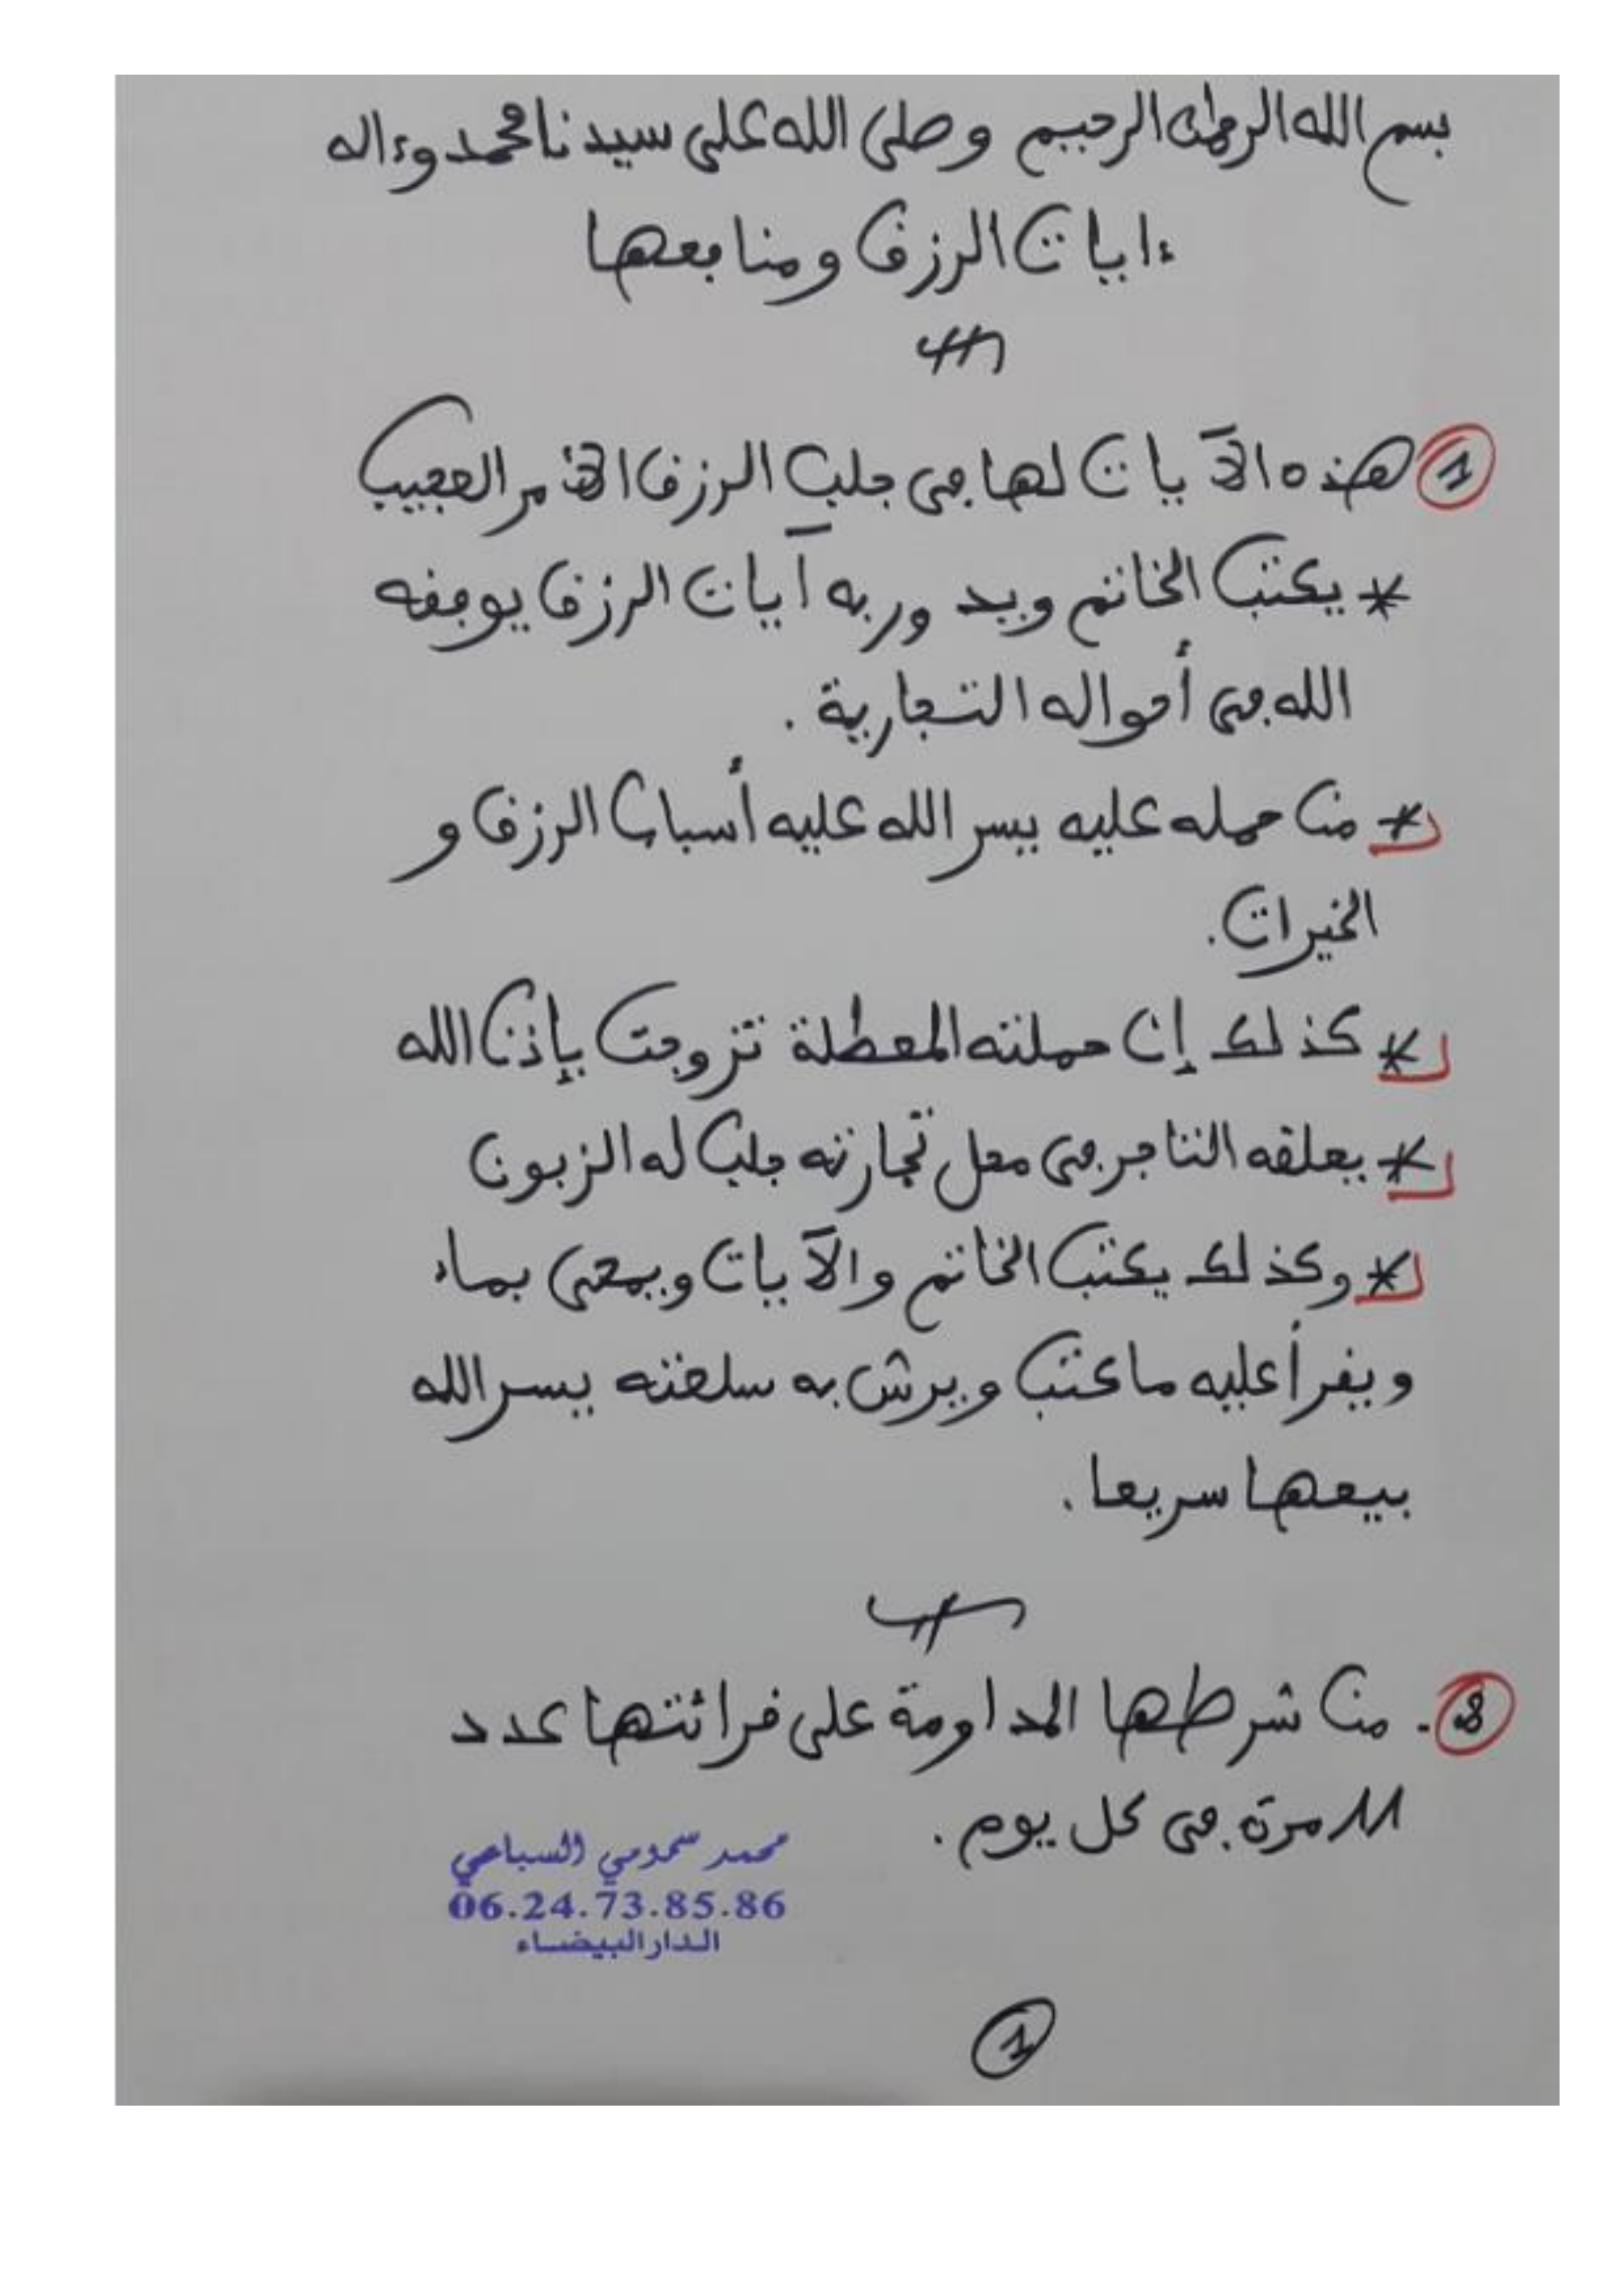 بسم الله الرحمن الرحيم وصلى الله على سيدنا محمد وءاله
ءايات الرزق ومنافعها
1 هذه الآيات لها في جلب الرزق الأمر العجيب
* يكتب الخاتم ويدور به آيات الرزق يوفقه
الله في أمواله التجارية .
* من حمله عليه ييسر الله عليه أسباب الرزق و
الخيرات .
* كذلك إن حملته المعطلة تزوجت بإذن الله
* يعلقه التاجر في محل تجارته جلب له الزبون
* وكذلك يكتب الخاتم والآيات ويمحى بماء
ويقرأ عليه ما كتب ويرش به سلعته ييسر الله
بيعها سريعا .
8. من شرطها المداومة على قرائتها عدد
مرة في كل يوم .
محمد سمومي السباعي
06.24.73.85.86
الدار البيضاء
1